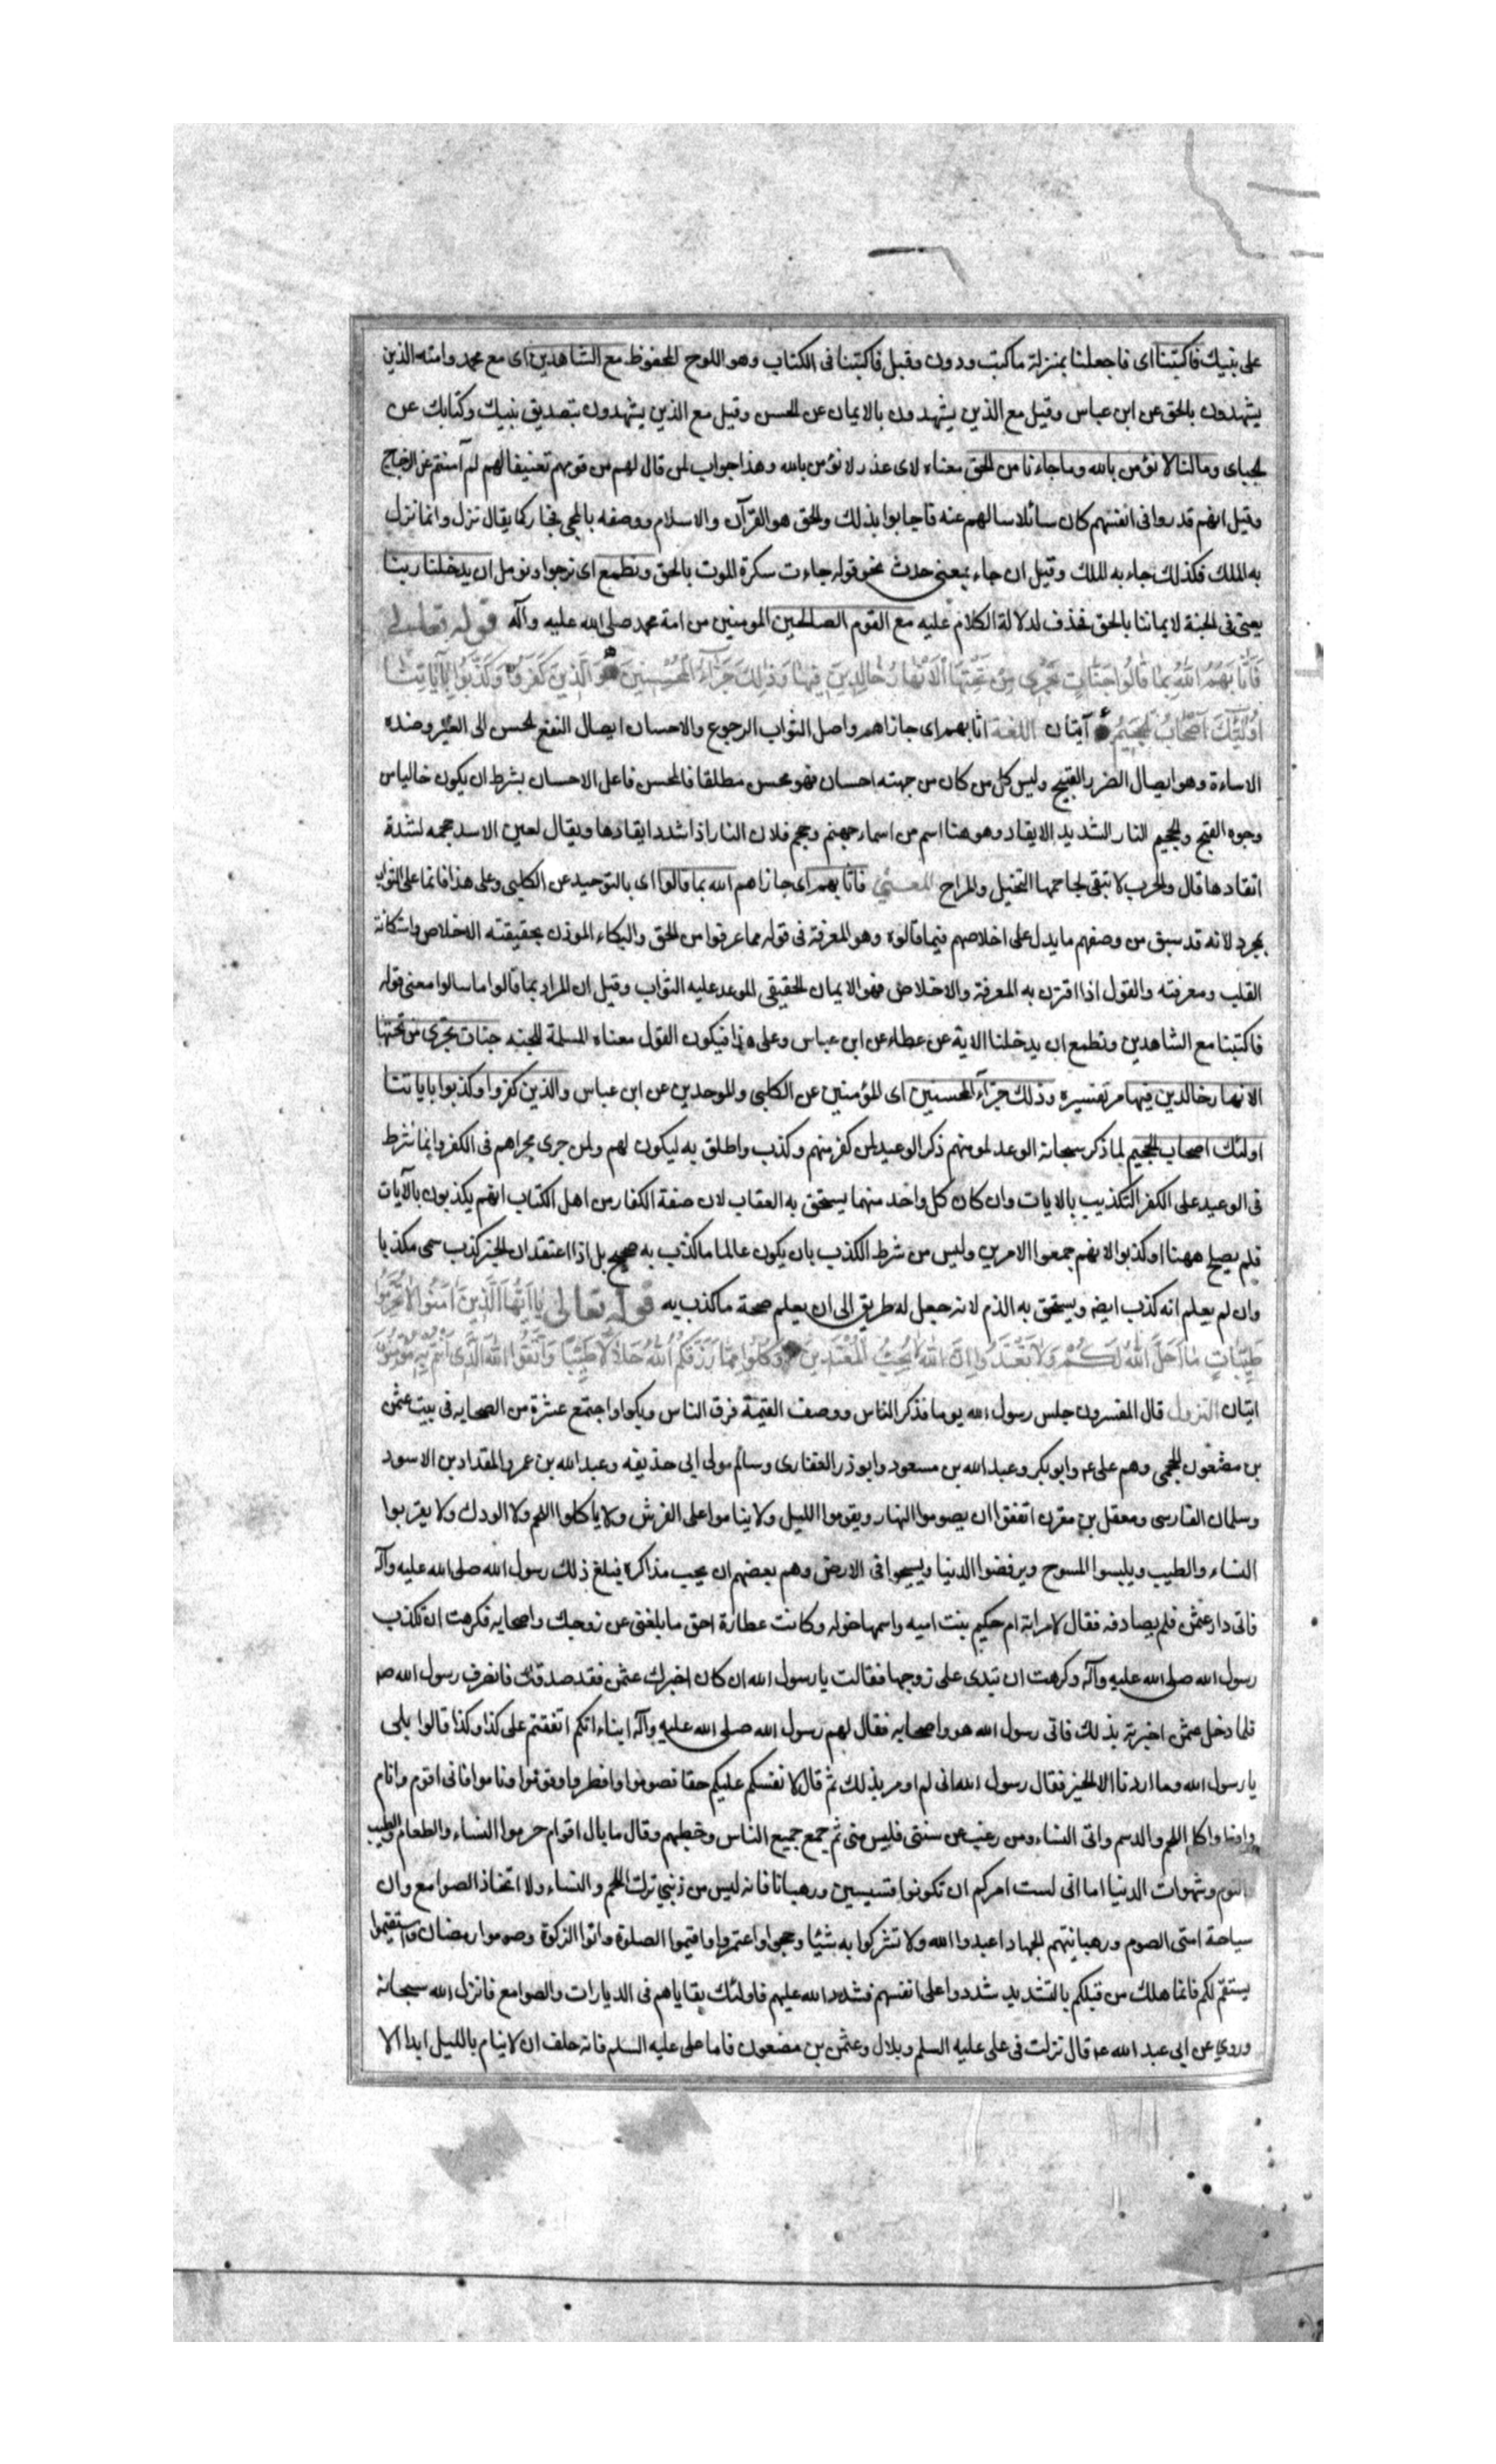 على نبيك فاكتبنا اى فاجعلنا بمنزلة ماكتب ودون وقيل فاكتبنا فى الكتاب وهو اللوح المحفوظ مع الشاهدين اى مع محمد وامته الذين
يشهدون بالحق عن ابن عباس وقيل مع الذين يشهدون بالايمان عن الحسن وقيل مع الذين يشهدون بتصديق نبيك وكتابك عن
الجباى ومالنا لا نؤمن بالله وماجاءنا من الحق معناه لاى عذر لا نؤمن بالله وهذا جواب لمن قال لهم من قومهم تعنيفا لهم لم آمنتم عن الزجاج
وقيل انهم قدروا فى انفسهم كان سائلا سالهم عنه فاجابوا بذلك والحق هو القرآن والاسلام ووصفه بالمجى مجاز كما يقال نزل وانما نزل
به الملك فكذلك جاء به الملك وقيل ان جاء بمعنى حدث نحو قوله جاءت سكرة الموت بالحق ونطمع اى نرجوا ونومل ان يدخلنا ربنا
يعنى فى الجنة لايماننا بالحق فحذف لدلالة الكلام عليه مع القوم الصالحين المومنين من امة محمد صلى الله عليه وآله قوله تعالى
فَاَثَابَهُمُ اللهُ بِمَا قَالُوا جَنَّاتٍ تَجْرِى مِنْ تَحْتِهَا الْاَنْهَارُ خَالِدِينَ فِيهَا وَذٰلِكَ جَزَآءُ الْمُحْسِنِينَ وَالَّذِينَ كَفَرُوا وَكَذَّبُوا بِآيَاتِنَا
اُولٰئِكَ اَصْحَابُ الْجَحِيمِ آيتان اللغة اثابهم اى جازاهم واصل الثواب الرجوع والاحسان ايصال النفع الحسن الى الغير وضده
الاساءة وهو ايصال الضرر القبيح وليس كل من كان من جهته احسان فهو محسن مطلقا فالمحسن فاعل الاحسان بشرط ان يكون خاليا من
وجوه القبح والجحيم النار الشديد الايقاد وهو هنا اسم من اسماء جهنم وجحم فلان النار اذا شدد ايقادها ويقال لعين الاسد جحمه لشدة
اتقادها قال والحرب لا تبقى لجاحمها التخيل والمراح المعنى فاثابهم اى جازاهم الله بما قالوا اى بالتوحيد عن الكلبى وعلى هذا فانما على الثواب
بمجرد لانه قد سبق من وصفهم مايدل على اخلاصهم فيما قالوه وهو المعرفة فى قوله مما عرفوا من الحق والبكاء الموذن بحقيقته الاخلاص واستكانة
القلب ومعرفته والقول اذا اقترن به المعرفة والاخلاص فهو الايمان الحقيقى الموعد عليه الثواب وقيل ان المراد بما قالوا ما سالوا معنى قوله
فاكتبنا مع الشاهدين ونطمع ان يدخلنا الاية عن عطاء عن ابن عباس وعلى هذا فيكون القول معناه المسلمة للجنه جنات تجرى من تحتها
الانهار خالدين فيها مر تفسيره وذلك جزآء المحسنين اى المؤمنين عن الكلبى والموحدين عن ابن عباس والذين كفروا وكذبوا باياتنا
اولئك اصحاب الجحيم لما ذكر سبحانه الوعد لمومنهم ذكر الوعيد لمن كفر منهم وكذب واطلق به ليكون لهم ولمن جرى مجراهم فى الكفر وانما شرط
فى الوعيد على الكفر التكذيب بالايات وان كان كل واحد منهما يستحق به العقاب لان صفة الكفار من اهل الكتاب انهم يكذبون بالآيات
فلم يصلح ههنا او كذبوا لانهم جمعوا الامرين وليس من شرط الكذب بان يكون عالما ماكذب به صحيح بل اذا اعتقد ان الخبر كذب سمى مكذبا
وان لم يعلم انه كذب ايض ويستحق به الذم لانه جعل له طريق الى ان يعلم صحة ماكذب به قوله تعالى يَا اَيُّهَا الَّذِينَ آمَنُوا لَا تُحَرِّمُوا
طَيِّبَاتِ مَا اَحَلَّ اللهُ لَكُمْ وَلَا تَعْتَدُوا اِنَّ اللهَ لَا يُحِبُّ الْمُعْتَدِينَ وَكُلُوا مِمَّا رَزَقَكُمُ اللهُ حَلَالًا طَيِّبًا وَاتَّقُوا اللهَ الَّذِى اَنْتُمْ بِهِ مُؤْمِنُونَ
ايتان النزول قال المفسرون جلس رسول الله يوما فذكر الناس ووصف القيمة فرق الناس وبكوا واجتمع عشرة من الصحابه فى بيت عثمن
بن مضعون الجمحى وهم على ع وابو بكر وعبد الله بن مسعود وابو ذر الغفارى وسالم مولى ابى حذيفه وعبد الله بن عمر والمقداد بن الاسود
وسلمان الفارسى ومعقل بن مقرن اتفقوا ان يصوموا النهار ويقوموا الليل ولا يناموا على الفرش ولا ياكلوا اللحم ولا الودك ولا يقربوا
النساء والطيب ويلبسوا المسوح ويرفضوا الدنيا ويسيحوا فى الارض وهم بعضهم ان يجب مذاكره فبلغ ذلك رسول الله صلى الله عليه وآله
فاتى دار عثمن فلم يصادفه فقال لامراته ام حكيم بنت اميه واسمها خوله وكانت عطارة احق مابلغنى عن زوجك واصحابه فكرهت ان تكذب
رسول الله صلى الله عليه وآله وكرهت ان تبدى على زوجها فقالت يا رسول الله ان كان اخبرك عثمن فقد صدقك فانصرف رسول الله ص
فلما دخل عثمن اخبرته بذلك فاتى رسول الله هو واصحابه فقال لهم رسول الله صلى الله عليه وآله انباء انكم اتفقتم على كذا وكذا قالوا بلى
يا رسول الله وما اردنا الا الخير فقال رسول الله انى لم اومر بذلك ثم قال لانفسكم عليكم حقا فصوموا وافطروا وقوموا وناموا فانى اقوم وانام
واكل اللحم والدسم واتى النساء ومن رغب عن سنتى فليس منى ثم جمع جميع الناس وخطبهم وقال مابال اقوام حرموا النساء والطعام والطيب
والنوم وشهوات الدنيا اما انى لست امركم ان تكونوا قسيسين ورهبانا فانه ليس من دينى ترك اللحم والنساء ولا اتخاذ الصوامع وان
سياحة امتى الصوم ورهبانيتهم الجهاد اعبدوا الله ولا تشركوا به شيئا وحجوا واعتمروا واقيموا الصلوة واتوا الزكوة وصوموا رمضان واستقيموا
يستقم لكم فانما هلك من قبلكم بالتشديد شددوا على انفسهم فشدد الله عليهم فاولئك بقاياهم فى الديارات والصوامع فانزل الله سبحانه
وروى عن ابى عبد الله ع قال نزلت فى على عليه السلم وبلال وعثمن بن مضعون فاما على عليه السلم فانه حلف ان لا ينام بالليل ابدا الا